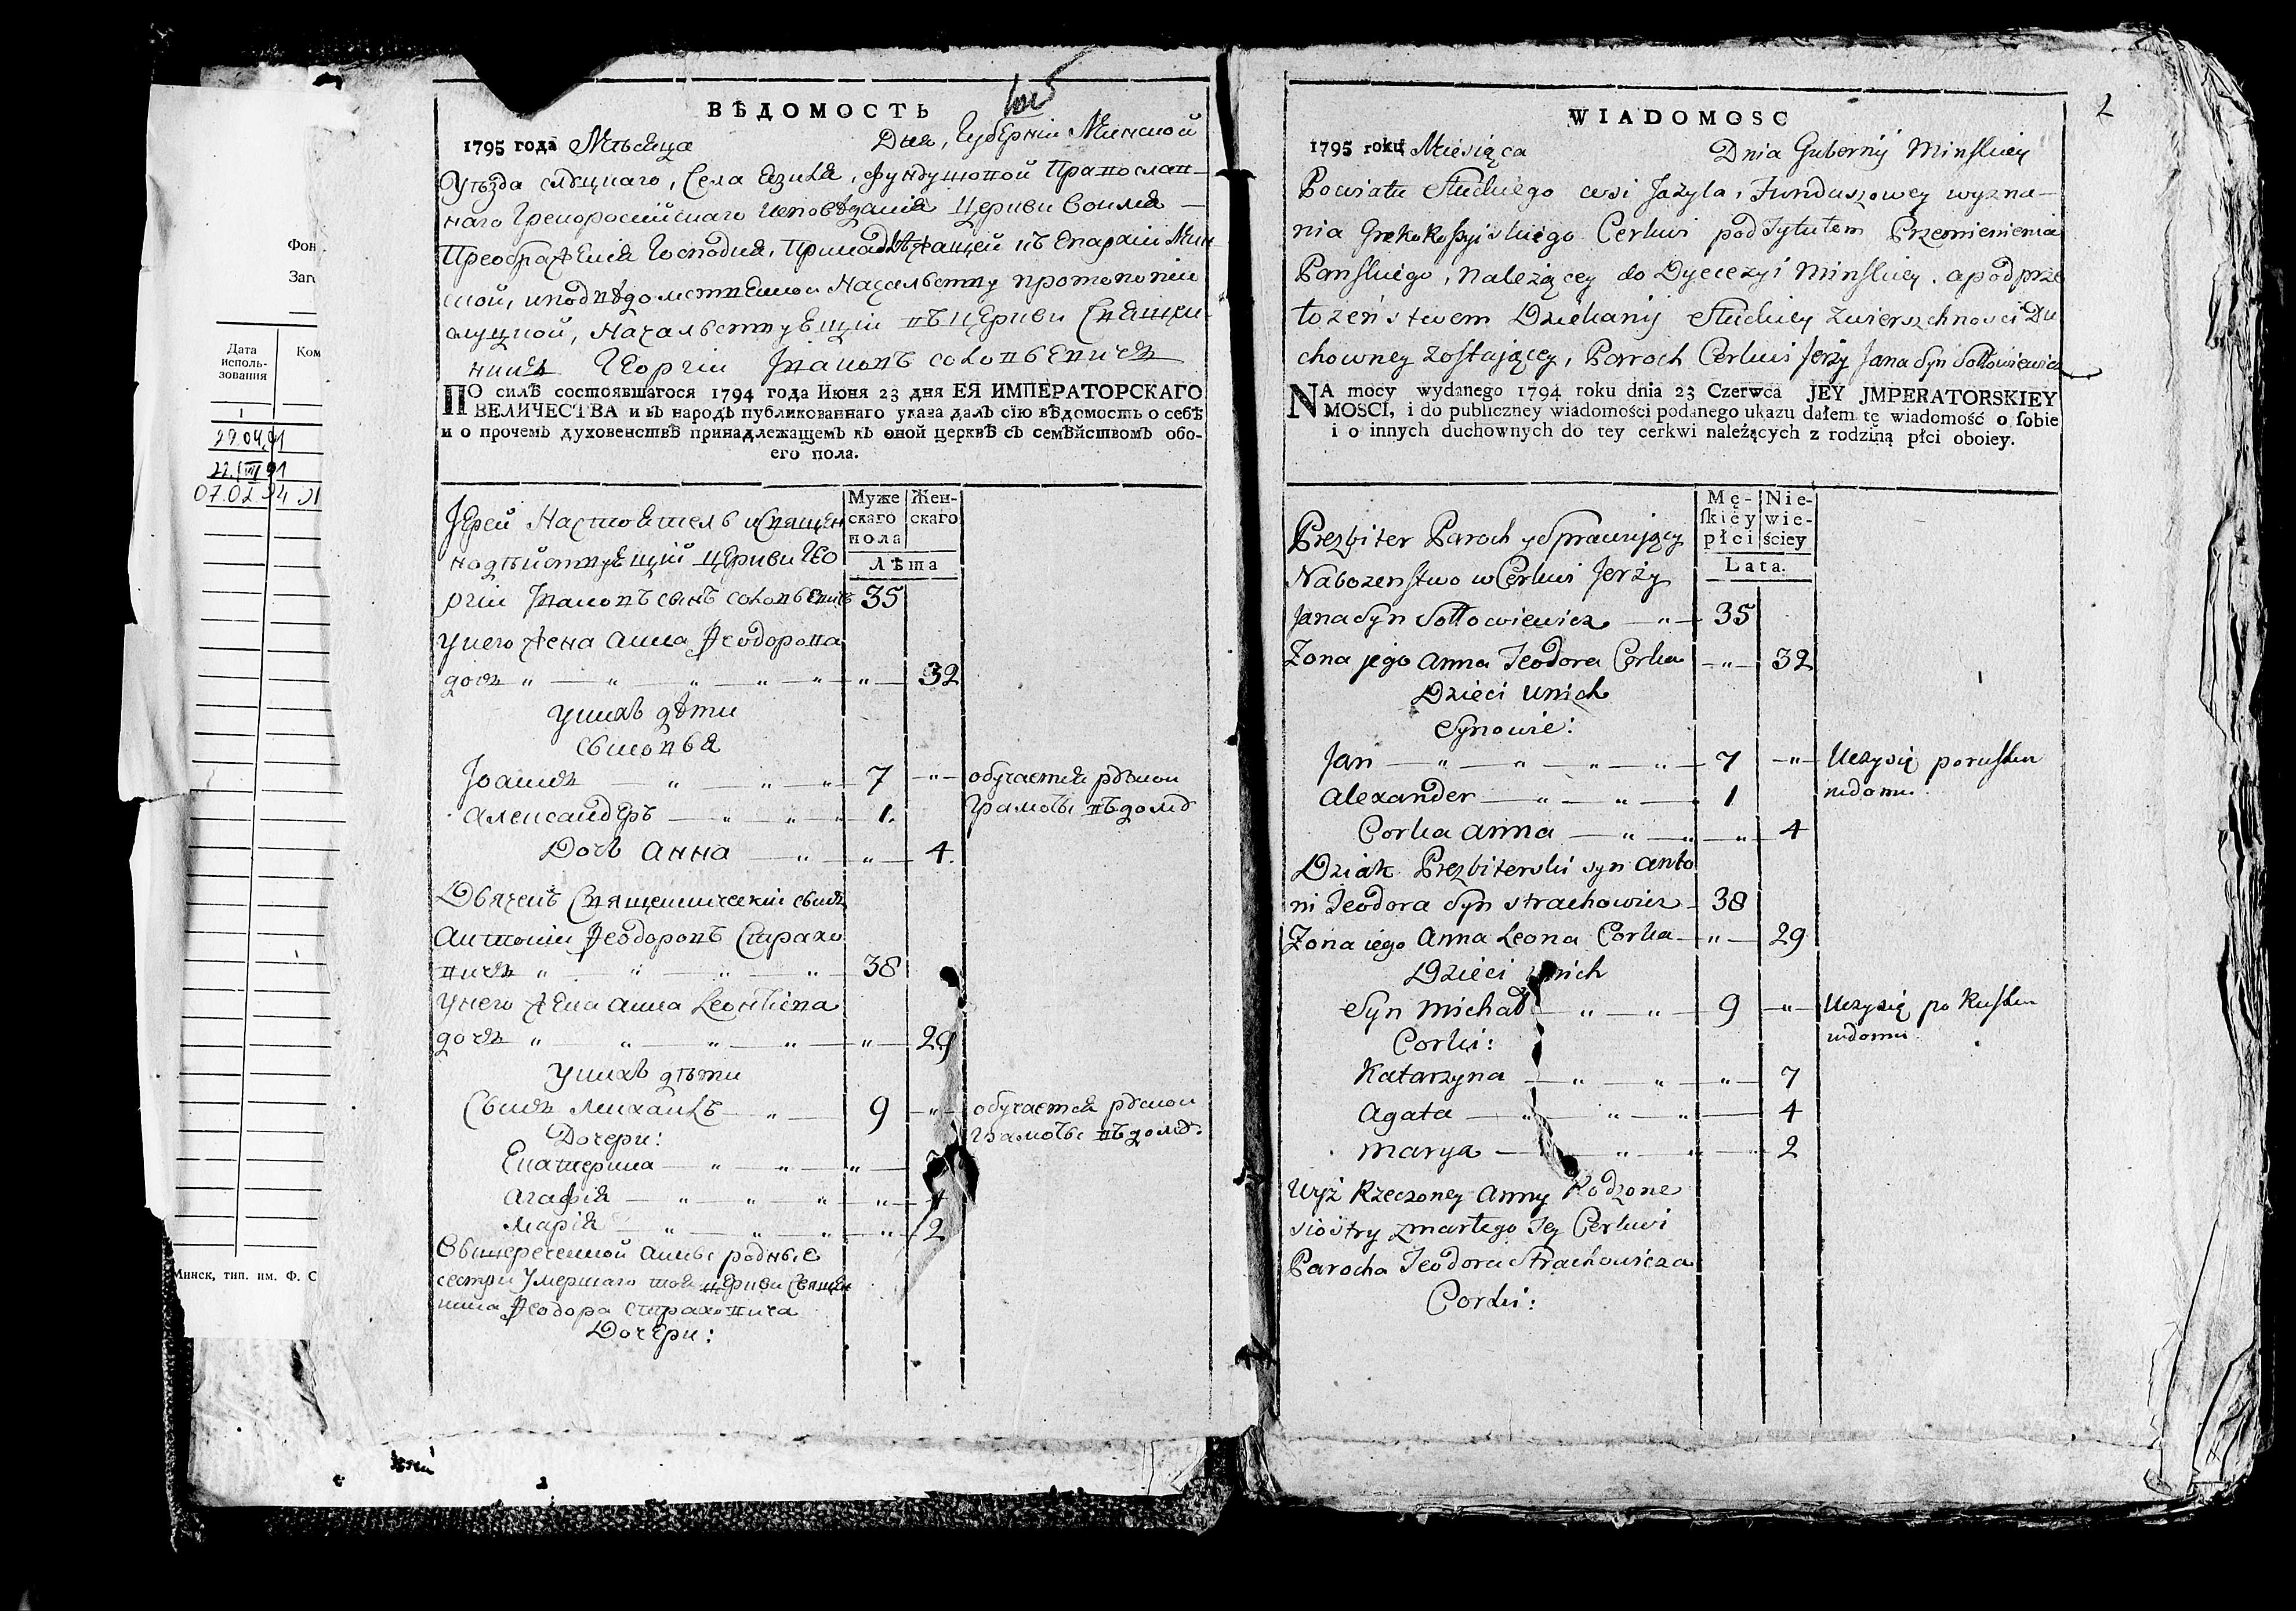 Фон
Заго
Дата
исполь-
зования
Ком
1
29.04.91
22.VIII 91
07.02.94
Минск, тип. им. Ф. С
ВѢДОМОСТЬ
1795 года Мѣсяца Дня, Губерніи Минской
Уѣзда слуцкаго, Села Языля, фундушовой Православ-
наго Грекороссійскаго исповѣданія Церкви воимя
Преображенія Господня, Принадлѣжащей къ Епархіи Мин
ской, иподвѣдомственной Начальству протопопіи
слуцкой, Начальствующій въ Церкви Священ
никъ Георгій Ивановъ соловьевичъ
ПО силѣ состоявшагося 1794 года Июня 23 дня ЕЯ ИМПЕРАТОРСКАГО
ВЕЛИЧЕСТВА и въ народъ публикованнаго указа далъ сїю вѣдомость о себѣ
и о прочемъ духовенствѣ принадлежащемъ къ оной церквѣ съ семѣйствомъ обо-
его пола.
Муже
скаго
пола
Жен-
скаго
Лѣта
Іерей Настоятель и Священ
нодѣйствующій Церкви Гео
ргій Ивановъ сынъ соловьевичъ 35
Унего жена анна Ѳеодорова
дочь " " " " " " 32
Унихъ дѣти
сыновья
Іоаннъ " " " 7 " обучается
александеръ " " " 1. грамотѣ въдомѣ
Дочь анна " " 4.
Дьячекъ Священническій сынъ
антоній Ѳеодоровъ Страхо
вичъ " " " " 38
Унего жена анна Леонтіева
дочь " " " " " 29
Унихъ дѣти
Сынъ михаилъ " 9 " обучается
Дочери: грамотѣ въдомѣ.
Екатерина " " "
агафія " " " " 4
марія " " " " 2
Вышереченной анны родные
сестри Умершаго той церкви Священ
ника Ѳеодора страховича
Дочери:
2
WIADOMOSC
1795 roku Miesiąca Dnia Gubernij Minskiey
Powiatu Słuckiego wsi Jazyla, Funduszowey wyzna-
nia Grekoroſsyiskiego Cerkwi pod Tytułem Przemienienia
Panskiego, należącey do Dyecezyi Minskiey. a pod prze
łożeństwem Dziekanij Słuckiey Zwierzchnosci Du
chowney zostającey, Parroch Cerkwi Jerży Jana Syn Sołłowiewicz
NA mocy wydanego 1794 roku dnia 23 Czerwca JEY JMPERATORSKIEY
MOSCI, i do publiczney wiadomości podanego ukazu dałem tę wiadomość o ſobie
i o innych duchownych do tey cerkwi należących z rodziną płci oboiey.
Mę-
ſkiey
płci
Nie-
wie-
ściey
Lata.
Prezbiter Paroch y Sprawujący
Nabozenstwo w Cerkwi Jerży
Jana Syn Sołłowiewicz " 35
Zona jego Anna Teodora Corka " 32
Dzieci u nich
Synowie:
Jan " " " " 7 " Uczysię porusku
Alexander " " 1 wdomu.
Corka anna " " " 4
Dziak Prezbiterski syn anto
ni Teodora Syn strachowicz 38
Zona iego Anna Leona Corka " 29
Dzieci u nich
Syn Michał " " 9 " Uczysię po Rusku
Corki: wdomu.
Katarzyna " " " 7
Agata " " " 4
Marya " " " 2
Wyż Rzeczoney Anny Rodzone
siostry zmarłego Tey Cerkwi
Parocha Teodora Strachowicza
Corki: